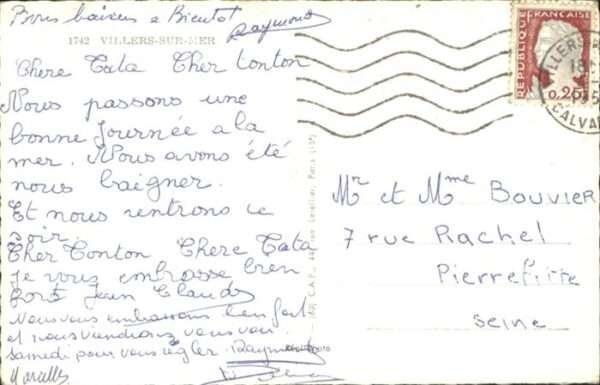 Bons baisers a Bientot
Raymond
1742 VILLERS-SUR-MER
Chere Tata Cher tonton
Nous passons une
bonne journée a la
mer. Nous avons été
nous baigner.
Et nous rentrons ce
soir.
Cher Tonton Chere Tata
Je vous embrasse bien
fort Jean Claude
Nous vous embrassons bien fort
et nous viendrons vous voir
samedi pour vous régler. Raymond
Marcelle
REPUBLIQUE FRANCAISE
0,25
VILLERS
18
CALVA
Mr et Mme BOUVIER
7 rue Rachel
Pierrefitte
Seine
C.A.P.
Paris